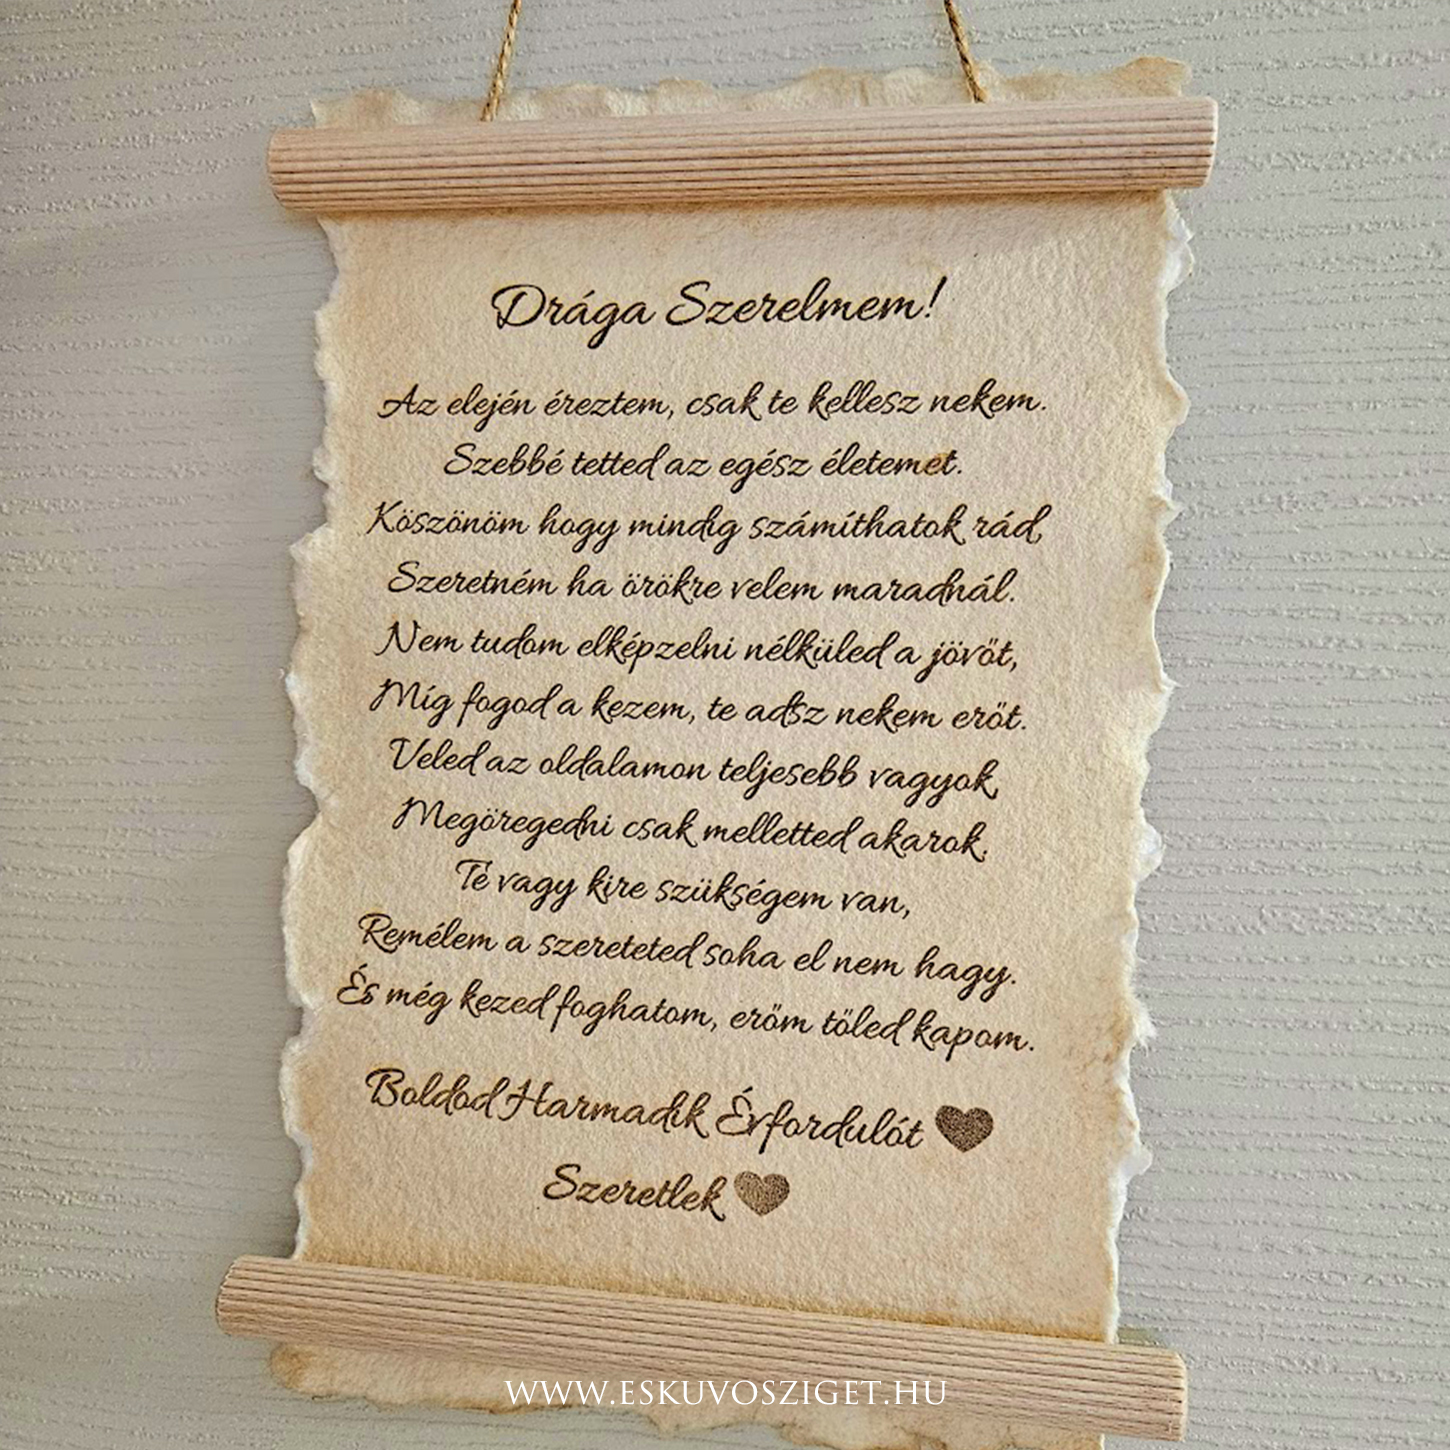 Drága Szerelmem!
Az elején éreztem, csak te kellesz nekem.
Szebbé tetted az egész életemet.
Köszönöm hogy mindig számíthatok rád,
Szeretném ha örökre velem maradnál.
Nem tudom elképzelni nélküled a jövőt,
Míg fogod a kezem, te adsz nekem erőt.
Veled az oldalamon teljesebb vagyok,
Megöregedni csak melletted akarok.
Te vagy kire szükségem van,
Remélem a szereteted soha el nem hagy.
És még kezed foghatom, erőm tőled kapom.
Boldod Harmadik Évfordulót
Szeretlek
WWW.ESKUVOSZIGET.HU